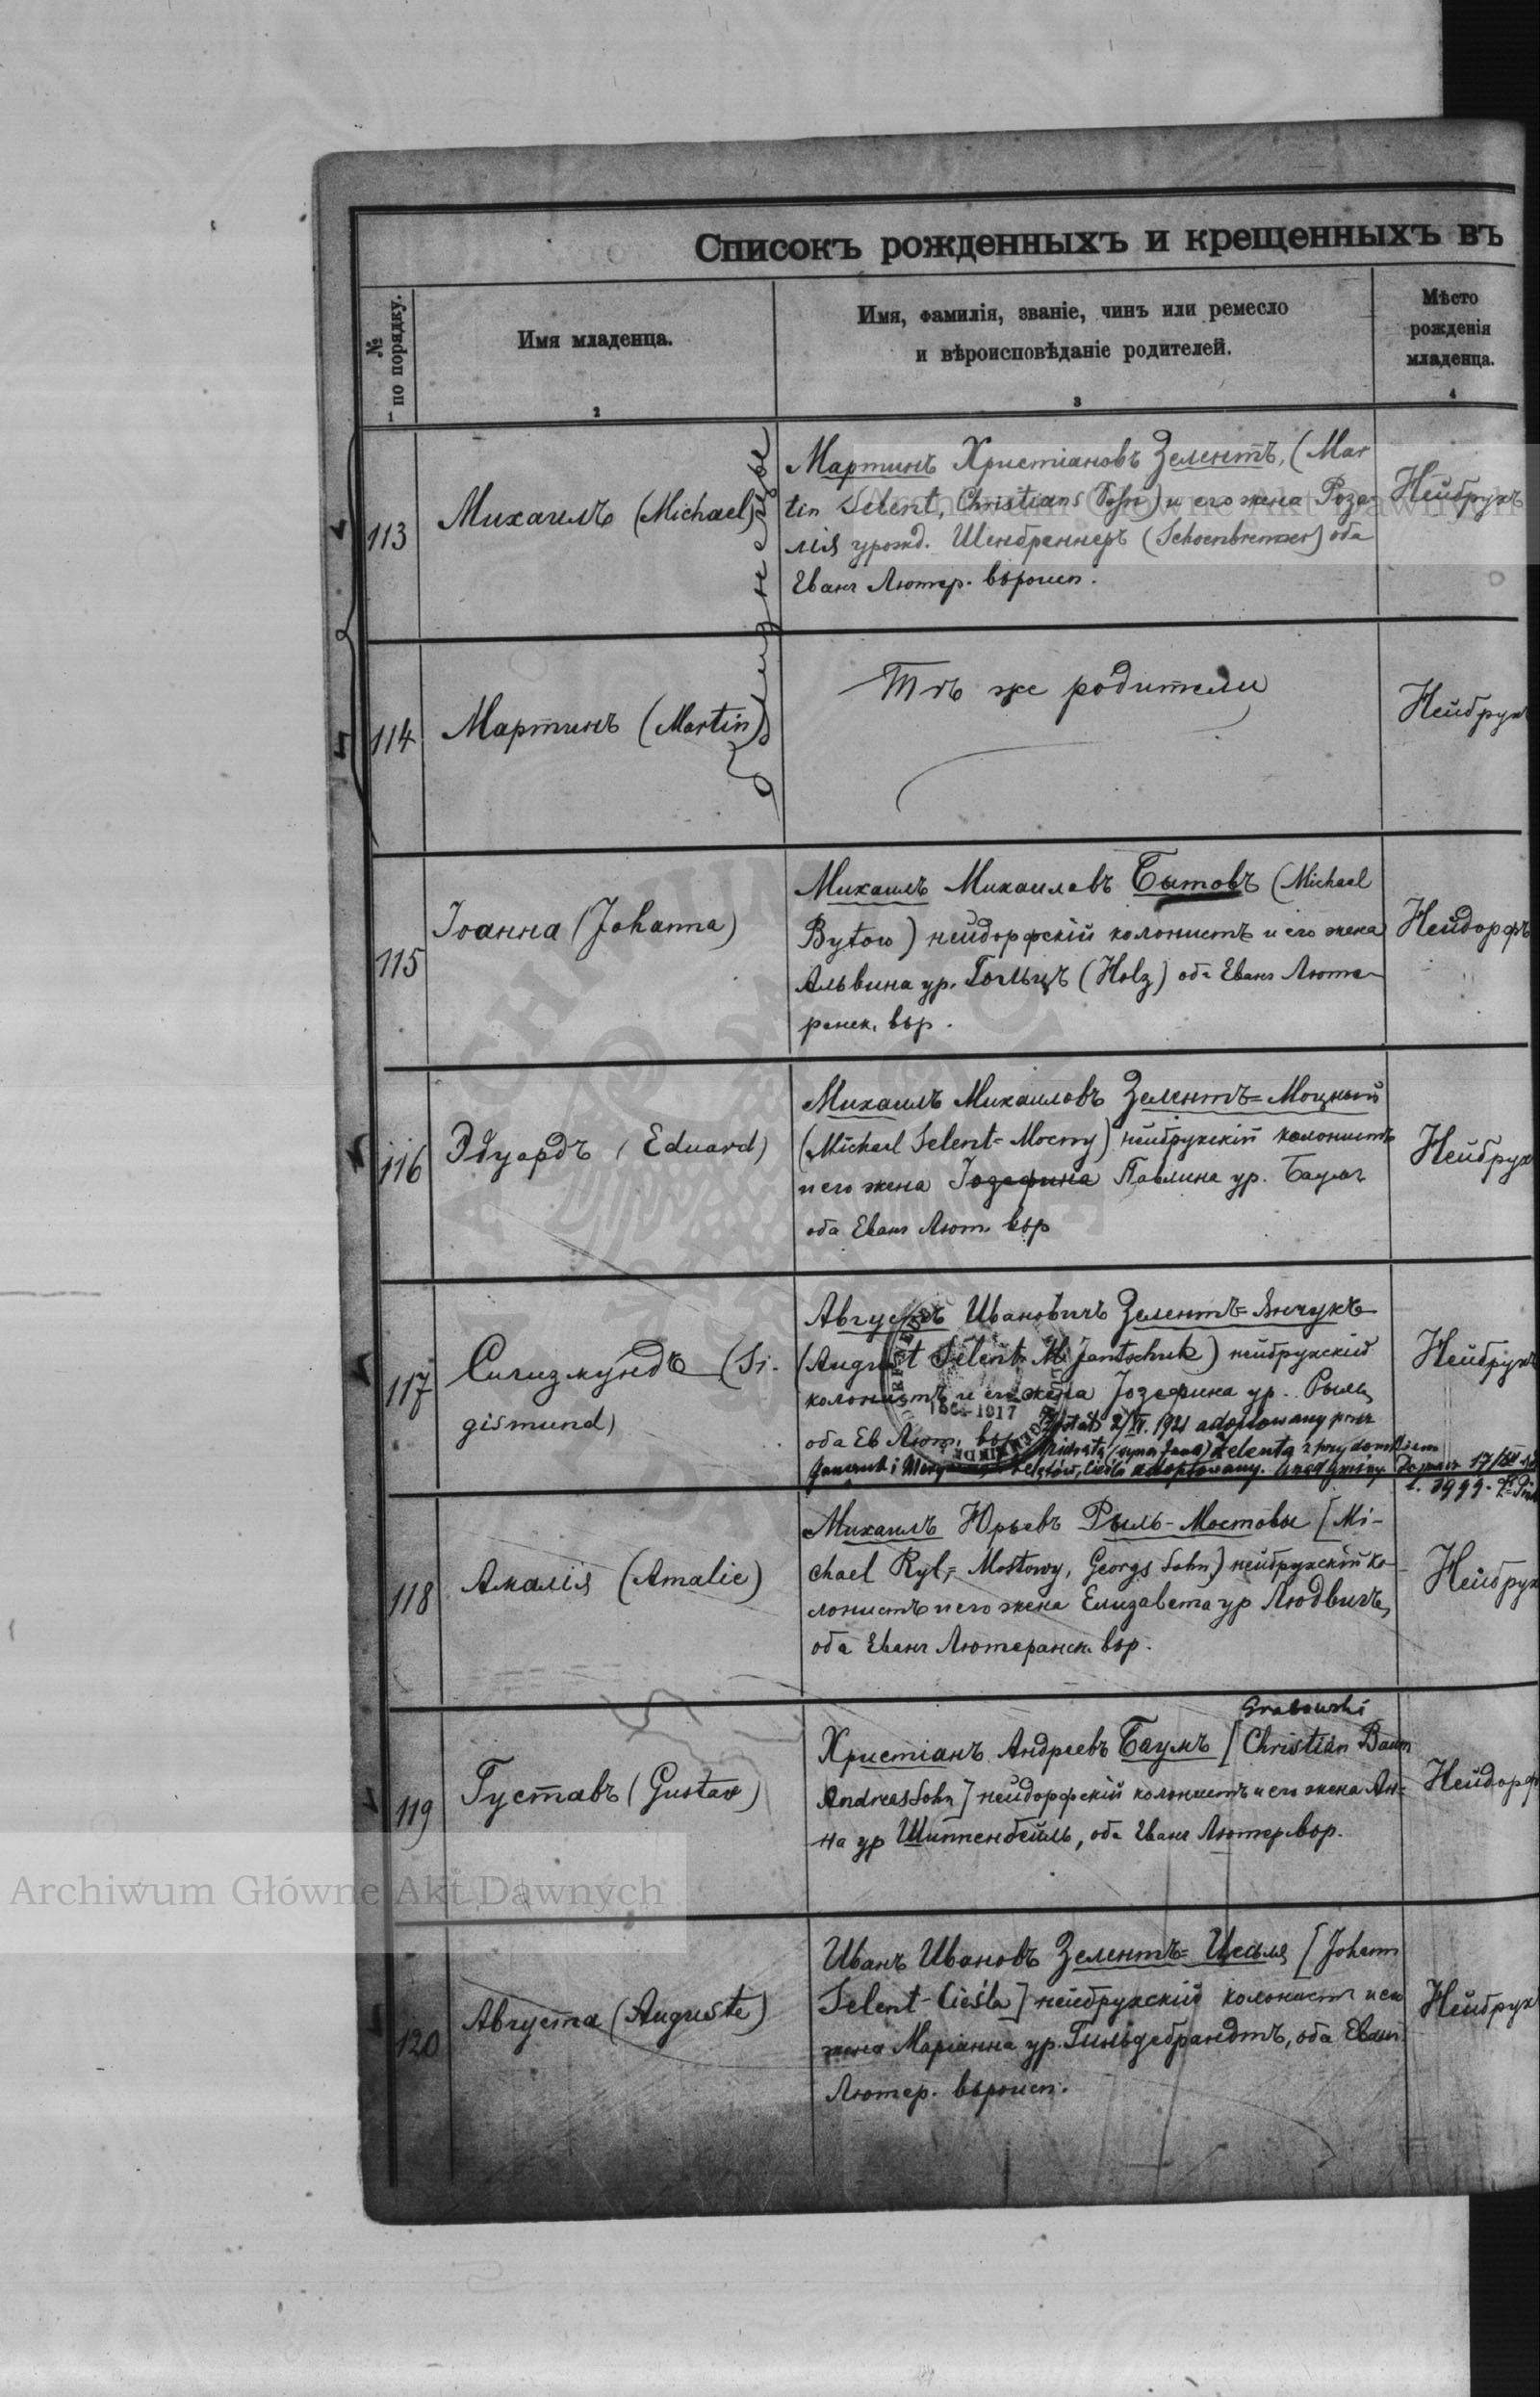 Списокъ рожденныхъ и крещенныхъ въ
№ по порядку.
Имя младенца.
Имя, фамилія, званіе, чинъ или ремесло
и вѣроисповѣданіе родителей.
Мѣсто
рожденія
младенца.
1
2
3
4
113
Михаилъ (Michael)
близнецы
Мартинъ Христіановъ Зелентъ, (Mar
tin Selent, Christians Sohn) и его жена Роза
лія урожд. Шенбреннеръ (Schoenbrenner) оба
Еванг Лютер. вѣроисп.
Нейбрухъ
114
Мартинъ (Martin)
Тѣ же родители
Нейбрух
115
Іоанна (Johanna)
Михаилъ Михаиловъ Бытовъ (Michael
Bytow) нейдорфскій колонистъ и его жена
Альвина ур. Гольцъ (Holz) оба Еванг Люте-
ранск. вѣр.
Нейдорфъ
116
Эдуардъ (Eduard)
Михаилъ Михаиловъ Зелентъ=Моцный
(Michael Selent=Mocny) нейбрухскій колонистъ
и его жена Іозефина Павлина ур. Баумъ
оба Еванг Лют. вѣр
Нейбрух
117
Сигизмундъ (Si-
gismund)
Августъ Ивановичъ Зелентъ=Янчукъ
(August Selent Jantschuk) нейбрухскій
колонистъ и его жена Іозефина ур. Рыль,
оба Ев Лют. вѣр
1564-1917
został 2/VI. 1921 adoptowany przez
Selenta z przydomkiem
Cieśla adoptowany.
17/III
Нейбрухъ
118
Амалія (Amalie)
Михаилъ Юрьевъ Рыль-Мостовы [Mi-
chael Ryl,= Mostowy, Georgs Sohn] нейбрухскій ко-
лонистъ и его жена Елизавета ур Людвигъ,
оба Еванг Лютеранск. вѣр.
Нейбрух
119
Густавъ (Gustav)
Grabowski
Христіанъ Андреевъ Баумъ [Christian Baum
Andreas Sohn] нейдорфскій колонистъ и его жена Ан-
на ур Шиппенбейль, оба Еванг Лютер.вѣр.
Нейдорф
120
Августа (Auguste)
Иванъ Ивановъ Зелентъ=Цесьля [Johann
Selent-Cieśla] нейбрухскій колонистъ и его
жена Маріанна ур. Гильдебрандтъ, оба Еванг
Лютер. вѣроисп.
Нейбрух
Archiwum Główne Akt Dawnych